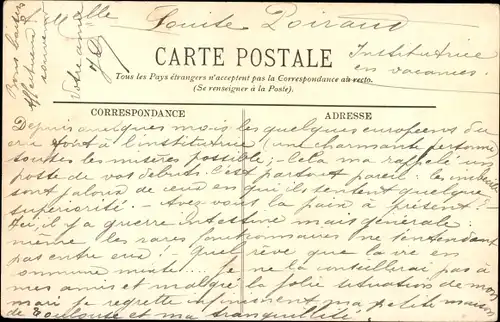 Mlle Louise Poiraud
Institutrice
en vacances.
Bons baisers
affectueux
Votre amie
CARTE POSTALE
Tous les Pays étrangers n'acceptent pas la Correspondance au recto.
(Se renseigner à la Poste).
CORRESPONDANCE
ADRESSE
Depuis quelques mois les quelques européens du
font à l'institutrice (une charmante personne)
toutes les misères possible; Cela me rappelle un
poste de vos débuts. C'est partout pareil: les imbéciles
sont jaloux de ceux en qui ils sentent quelque
supériorité. - Avez-vous la paix à présent?
Ici, il y a guerre intestine mais générale
même les rares fonctionnaires ne s'entendent
pas entre eux! - Quel rêve que la vie en
commune mixte... Je ne la conseillerai pas à
mes amis et malgré la jolie situation de mon
mari je regrette infiniment ma petite maison
de Toulouse et ma tranquillité!